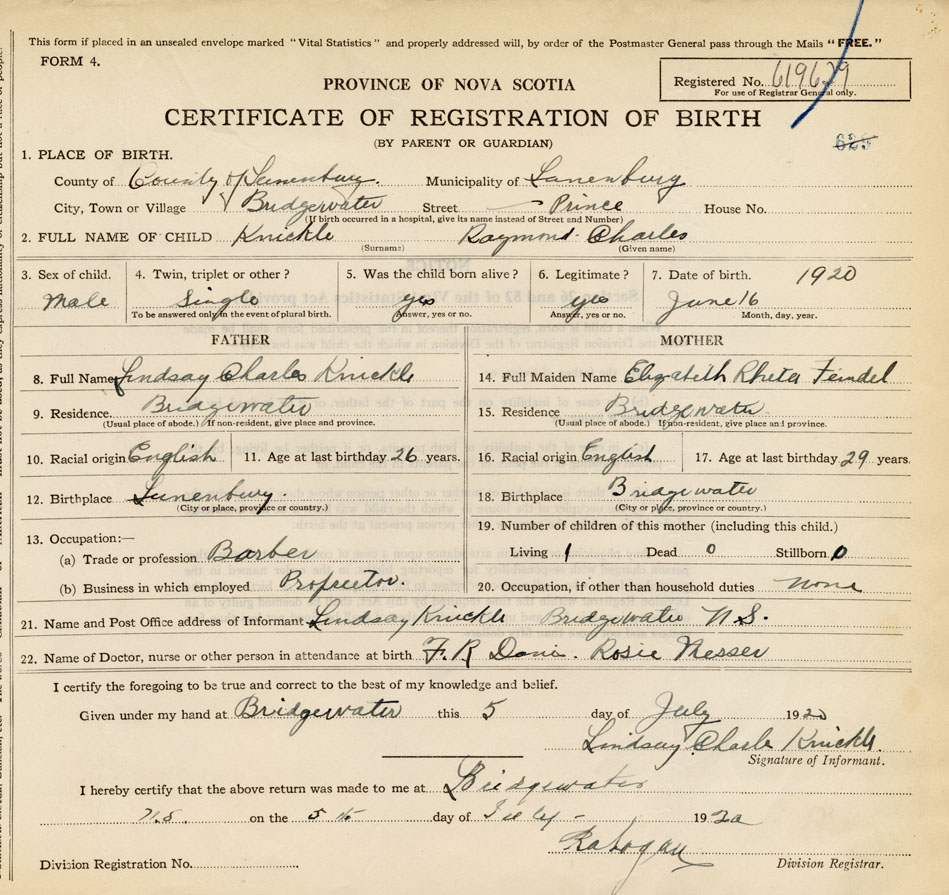 This form if placed in an unsealed envelope marked "Vital Statistics" and properly addressed will, by order of the Postmaster General pass through the Mails "FREE."
FORM 4.
Registered No. 619629
For use of Registrar General only.
PROVINCE OF NOVA SCOTIA
CERTIFICATE OF REGISTRATION OF BIRTH
(BY PARENT OR GUARDIAN)
1. PLACE OF BIRTH.
County of County of Lunenburg. Municipality of Lunenburg
City, Town or Village Bridgewater Street Prince House No.
(If birth occurred in a hospital, give its name instead of Street and Number)
2. FULL NAME OF CHILD Knickle Raymond Charles
(Surname) (Given name)
3. Sex of child. 4. Twin, triplet or other? 5. Was the child born alive? 6. Legitimate? 7. Date of birth. 1920
Male Single yes yes June 16
To be answered only in the event of plural birth. Answer, yes or no. Answer, yes or no. Month, day, year.
FATHER MOTHER
8. Full Name Lindsay Charles Knickle 14. Full Maiden Name Elizabeth Rheta Feindel
9. Residence. Bridgewater 15. Residence Bridgewater
(Usual place of abode.) If non-resident, give place and province. (Usual place of abode.) If non-resident, give place and province.
10. Racial origin English 11. Age at last birthday 26 years. 16. Racial origin English 17. Age at last birthday 29 years.
12. Birthplace Lunenburg. 18. Birthplace Bridgewater
(City or place, province or country.) (City or place, province or country.)
19. Number of children of this mother (including this child.)
13. Occupation:—
(a) Trade or profession Barber Living 1 Dead 0 Stillborn 0
(b) Business in which employed Propietor. 20. Occupation, if other than household duties None
21. Name and Post Office address of Informant Lindsay Knickle Bridgewater N.S.
22. Name of Doctor, nurse or other person in attendance at birth F. R. Rosie Messer
I certify the foregoing to be true and correct to the best of my knowledge and belief.
Given under my hand at Bridgewater this 5 day of July 1920
Lindsay Charle Knickle.
Signature of Informant.
I hereby certify that the above return was made to me at Bridgewater
N.S. on the 5th day of July 1920
Division Registration No. Division Registrar.